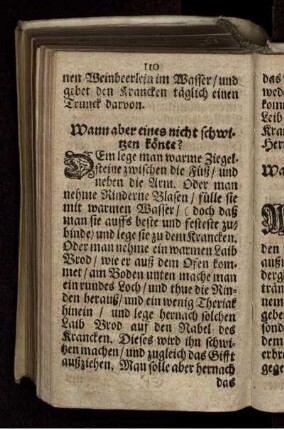 110
nen Weinbeerlein im Wasser / und
gebet den Krancken täglich einen
Trunck darvon.
Wann aber eines nicht schwi-
tzen könte?
DEm lege man warme Ziegel-
steine zwischen die Füß / und
neben die Arm. Oder man
nehme Rinderne Blasen / fülle sie
mit warmen Wasser / (doch daß
man sie auffs beste und festeste zu-
binde / und lege sie zu dem Krancken.
Oder man nehme ein warmen Laib
Brod / wie er auß dem Ofen kom-
met / am Boden unten mache man
ein rundes Loch / und thue die Rin-
den herauß / und ein wenig Theriak
hinein / und lege hernach solchen
Laib Brod auf den Nabel des
Krancken. Dieses wird ihn schwi-
tzen machen / und zugleich das Gifft
außziehen. Man solle aber hernach
das